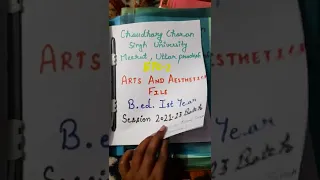 Chaudhary Charan
Singh University
Meerut, Uttar pradesh
ARTS AND AESTHETICS
FILE
B.ed. Ist Year
Session 2021-23 Batch